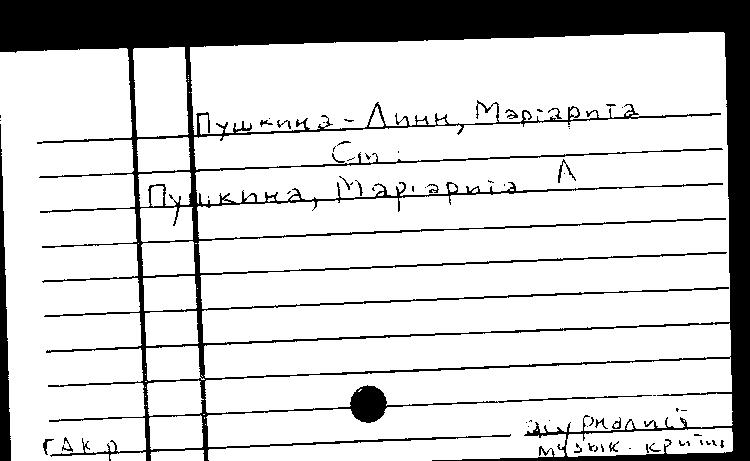 Пушкина-Линн, Маргарита
См:
Пушкина, Маргарита А
ГАКр
журналист
музык. критик